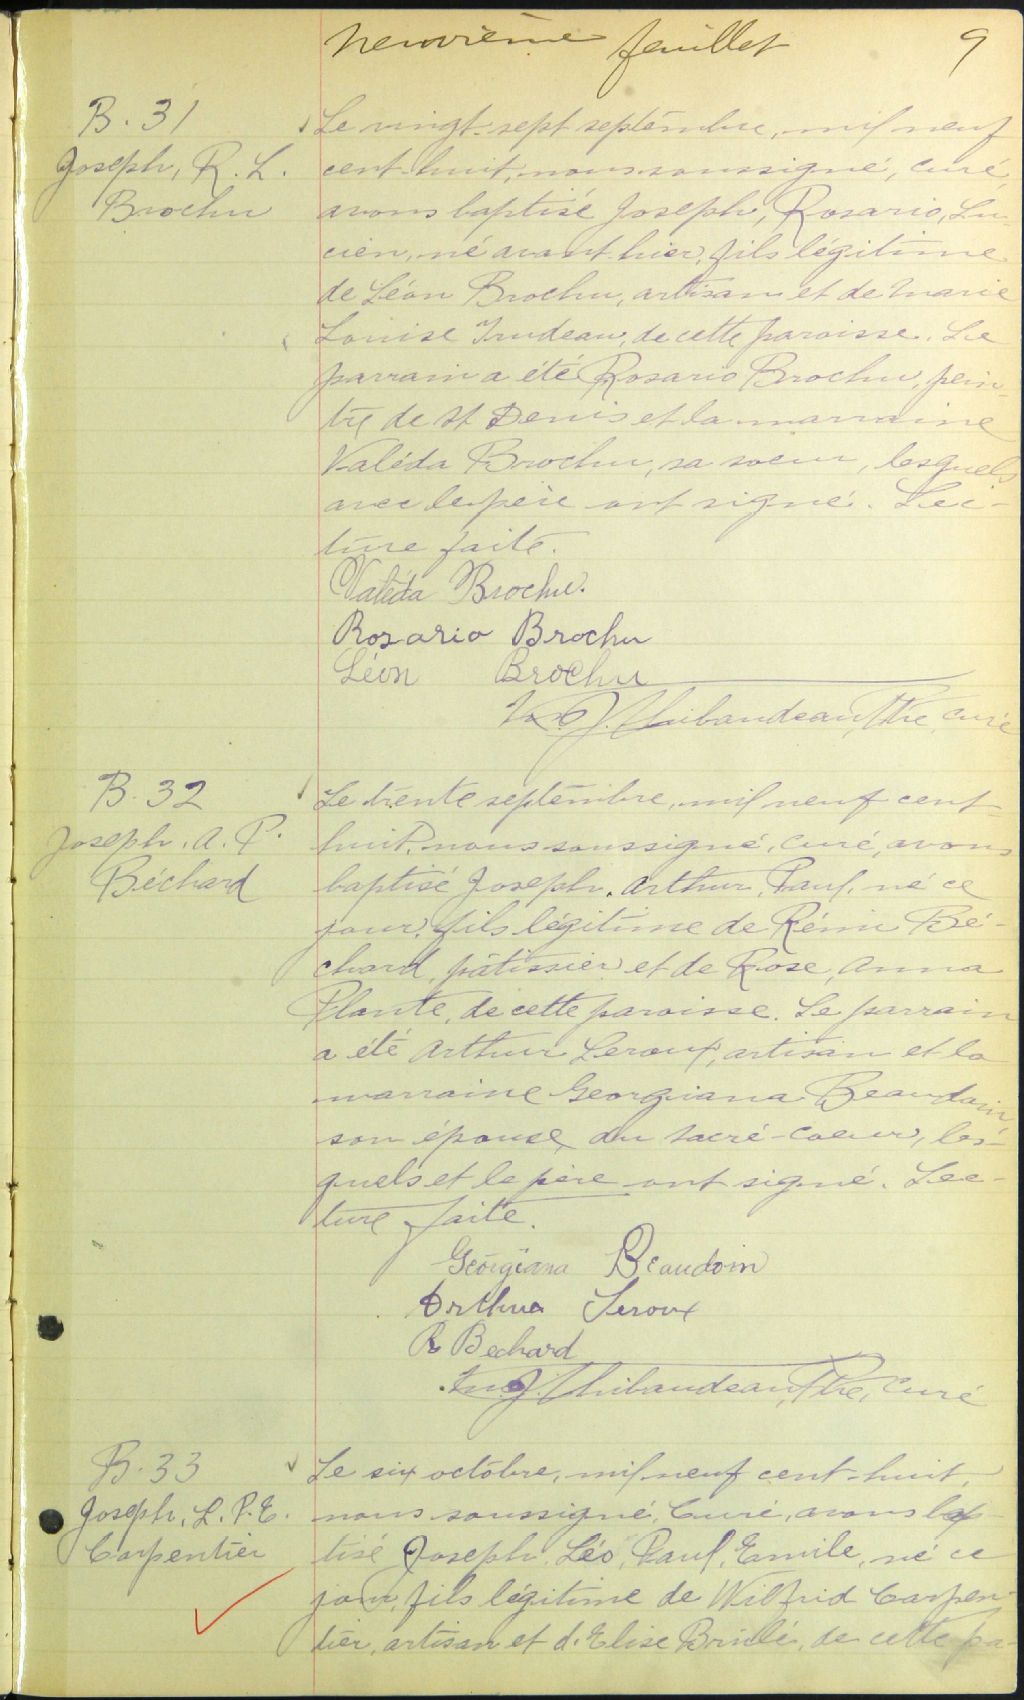 neuvième feuillet 9
B. 31
Joseph, R. L.
Brochu
Le vingt-sept septembre, mil neuf
cent-huit, nous soussigné, curé,
avons baptisé Joseph, Rosario, Lu-
cien, né avant-hier, fils légitime
de Léon Brochu, artisan et de Marie
Louise Trudeau, de cette paroisse. Le
parrain a été Rosario Brochu, pein-
tre de St Denis et la marraine
Valéda Brochu, sa soeur, lesquels
avec le père ont signé. Lec-
ture faite.
Valéda Brochu.
Rosario Brochu
Léon Brochu
J. Thibaudeau, Ptre, curé
B. 32
Joseph. A. P.
Béchard
Le trente septembre, mil neuf cent-
huit, nous soussigné, curé, avons
baptisé Joseph, Arthur, Paul, né ce
jour, fils légitime de Rémi Bé-
chard, pâtissier et de Rose, Anna
Plante, de cette paroisse. Le parrain
a été Arthur Leroux, artisan et la
marraine Georgiana Beaudoin
son épouse, du Sacré-Coeur, les-
quels et le père ont signé. Lec-
ture faite.
Georgiana Beaudoin
Arthur Leroux
R Bechard
J. Thibaudeau, Ptre, curé
B. 33
Joseph. L. P. E.
Carpentier
Le six octobre, mil neuf cent-huit,
nous soussigné, Curé, avons bap-
tisé Joseph, Léo, Paul, Emile, né ce
jour, fils légitime de Wilfrid Carpen-
tier, artisan et d'Elise Brûlé, de cette pa-